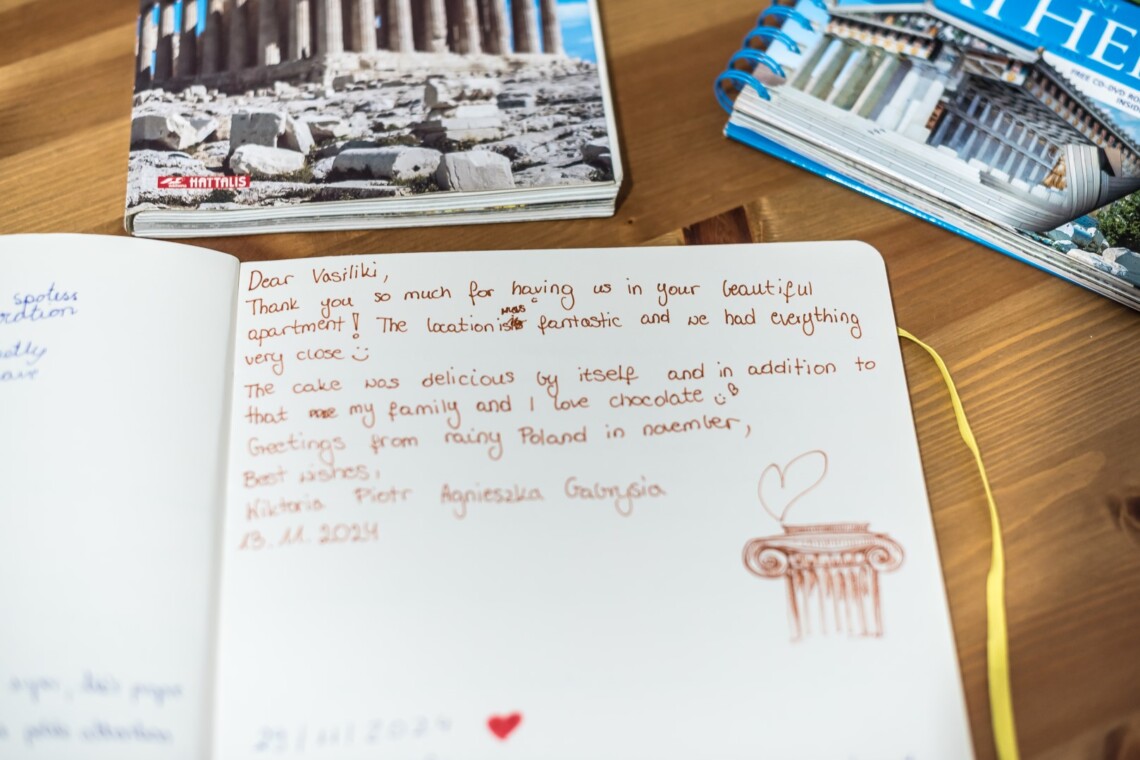 HATTALIS
THE
FREE CD-DVD RO
INSID
spotess
oration
Dear Vasiliki,
Thank you so much for having us in your beautiful
apartment! The location is fantastic and we had everything
very close :)
The cake was delicious by itself and in addition to
that my family and I love chocolate :)
Greetings from rainy Poland in november,
Best wishes,
Wiktoria Piotr Agnieszka Gabrysia
13.11.2024
23/11/2024